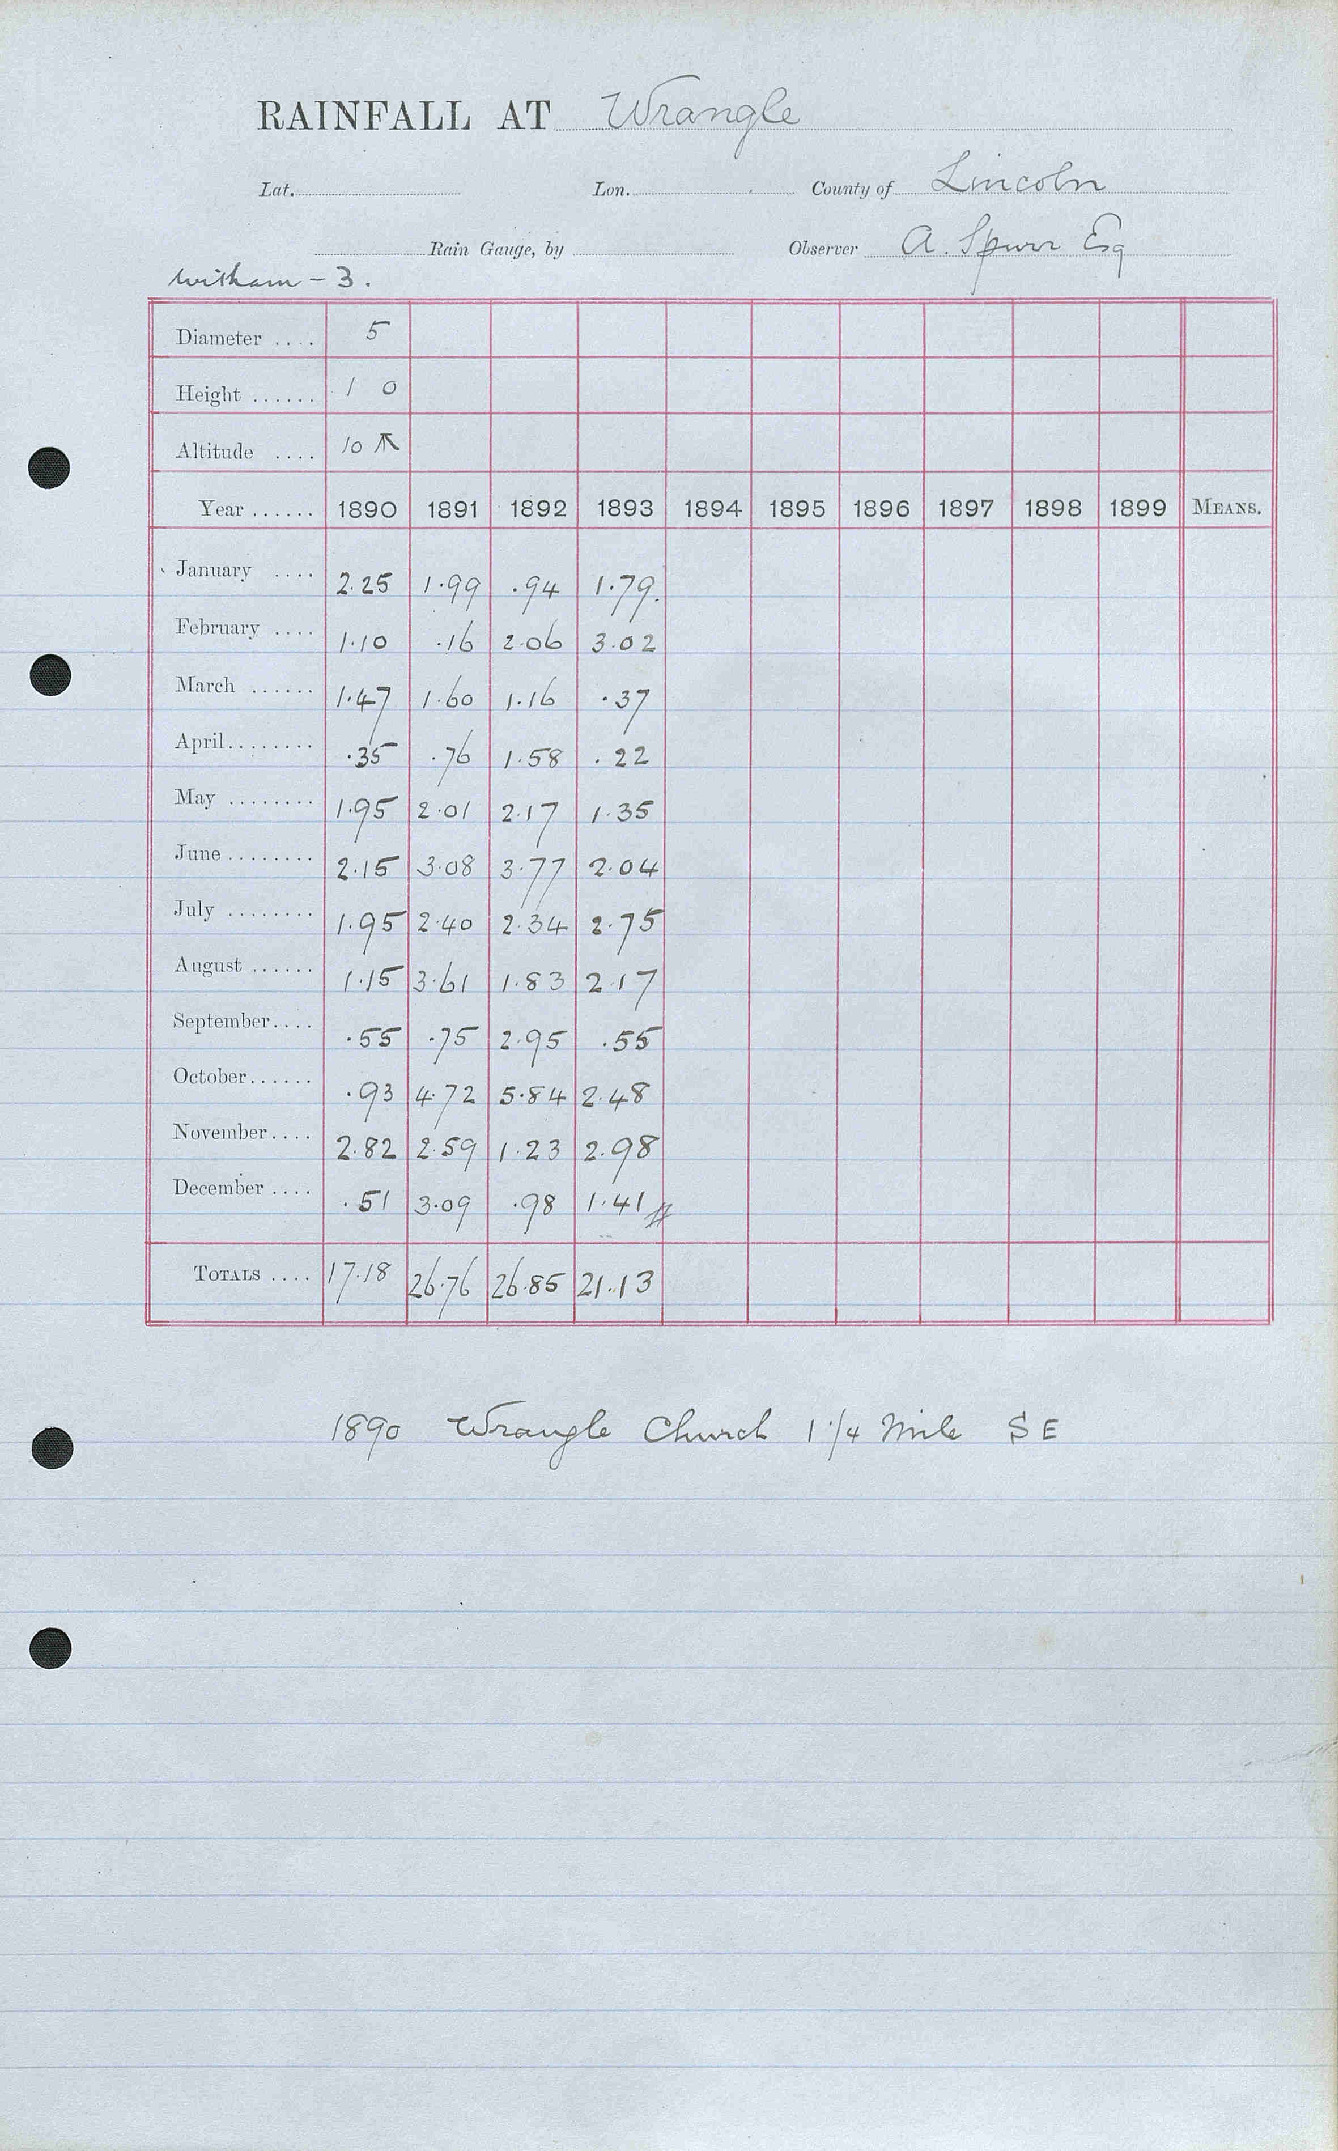 RAINFALL AT Wrangle
Lat. Lon. County of Lincoln
Rain Gauge, by Observer A. Spurr Esq
Witham - 3.
Diameter .... 5
Height ...... 1 0
Altitude .... 10
Year ...... 1890 1891 1892 1893 1894 1895 1896 1897 1898 1899 MEANS.
January .... 2.25 1.99 .94 1.79.
February .... 1.10 .16 2.06 3.02
March ...... 1.47 1.60 1.16 .37
April........ .35 .76 1.58 .22
May ........ 1.95 2.01 2.17 1.35
June ........ 2.15 3.08 3.77 2.04
July ........ 1.95 2.40 2.34 2.75
August ...... 1.15 3.61 1.83 2.17
September.... .55 .75 2.95 .55
October...... .93 4.72 5.84 2.48
November.... 2.82 2.59 1.23 2.98
December .... .51 3.09 .98 1.41 #
TOTALS .... 17.18 26.76 26.85 21.13
1890 Wrangle Church 1 1/4 Mile S E